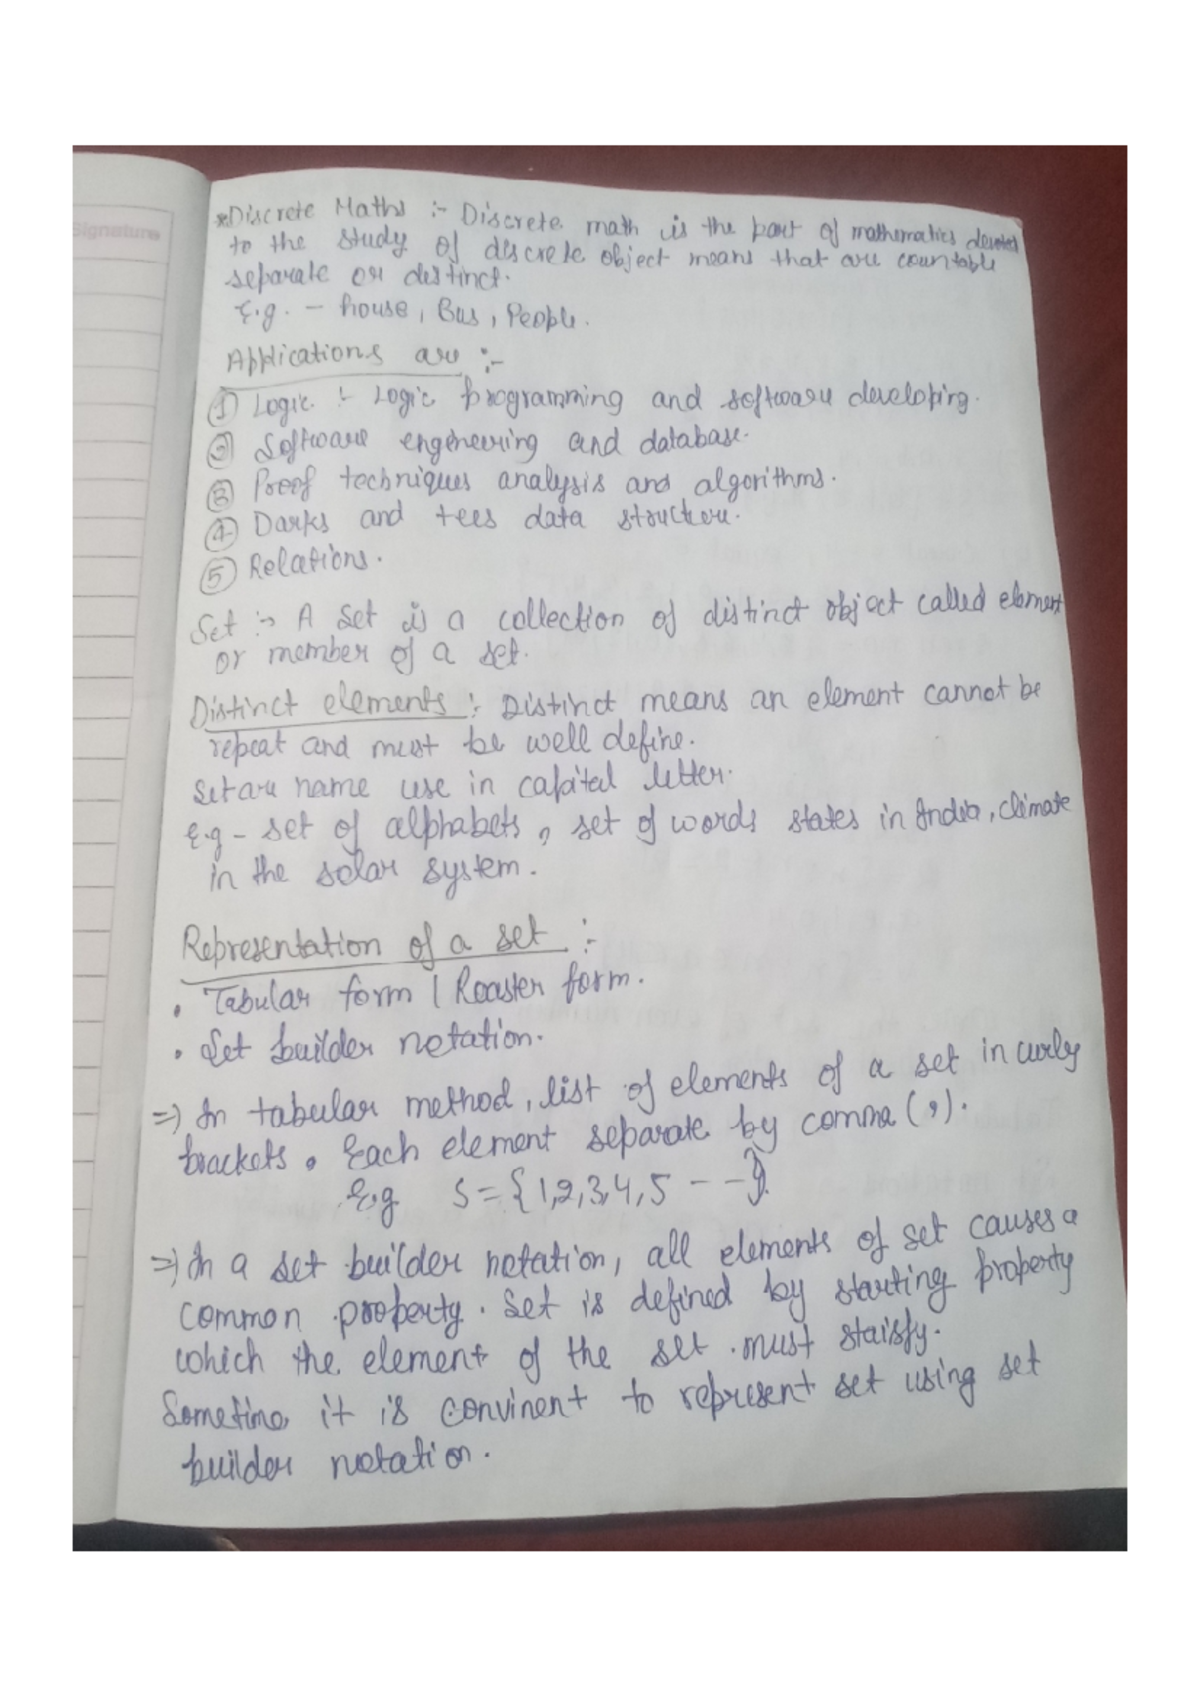 Signature
*Discrete Maths :- Discrete math is the part of mathematics devoted
to the study of discrete object means that are countable
separate or distinct.
E.g. - house, Bus, People.
Applications are :-
① Logic :- Logic programming and software developing.
② Software engineering and database.
③ Proof techniques analysis and algorithms.
④ Darks and tees data structure.
⑤ Relations.
Set :→ A set is a collection of distinct object called element
or member of a set.
Distinct elements :- Distinct means an element cannot be
repeat and must be well define.
Set are name use in capital letter.
E.g - set of alphabets, set of words states in India, climate
in the solar system.
Representation of a set :-
• Tabular form | Roaster form.
• Set builder notation.
⇒ In tabular method, list of elements of a set in curly
brackets. Each element separate by comma (,).
E.g S = {1,2,3,4,5 - - -}.
⇒ In a set builder notation, all elements of set causes a
common property. Set is defined by starting property
which the element of the set must staisfy.
Sometime, it is convinent to represent set using set
builder notation.